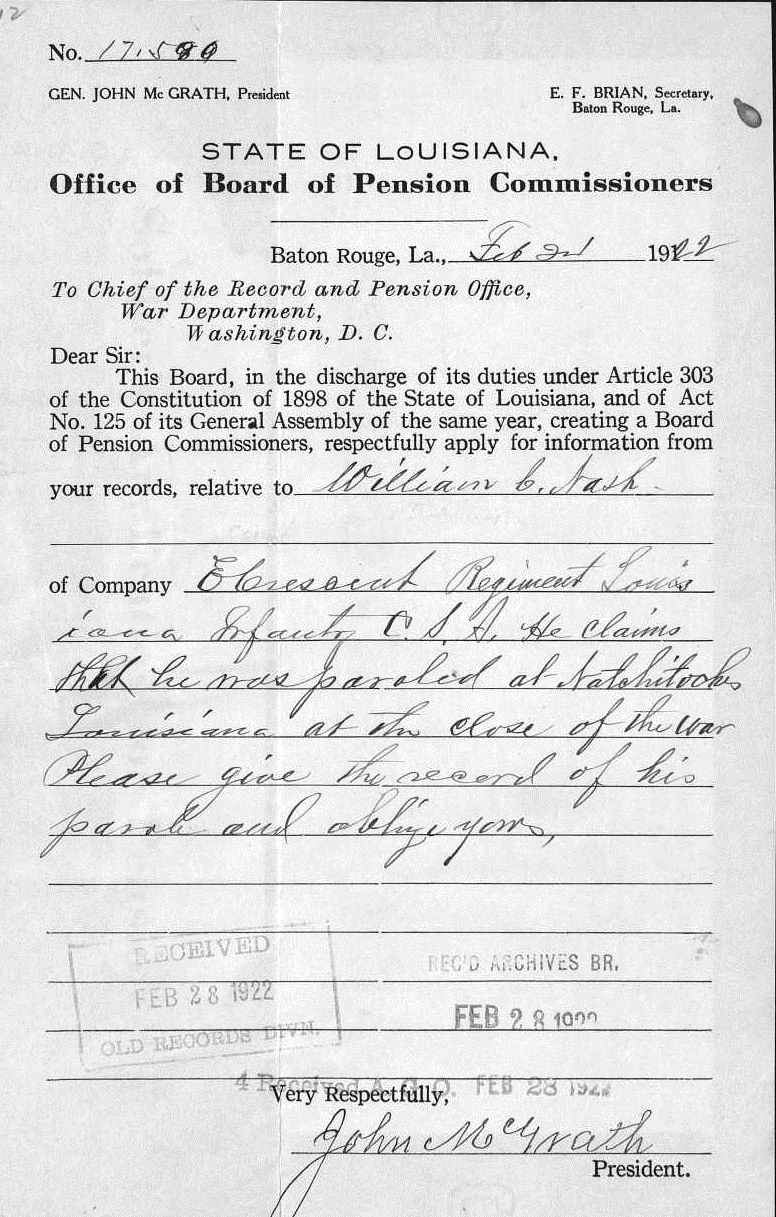 12
No. 17,580
GEN. JOHN Mc GRATH, President
E. F. BRIAN, Secretary,
Baton Rouge, La.
STATE OF LOUISIANA,
Office of Board of Pension Commissioners
Baton Rouge, La., Feb 1922
To Chief of the Record and Pension Office,
War Department,
Washington, D. C.
Dear Sir:
This Board, in the discharge of its duties under Article 303
of the Constitution of 1898 of the State of Louisiana, and of Act
No. 125 of its General Assembly of the same year, creating a Board
of Pension Commissioners, respectfully apply for information from
your records, relative to William C. Nash
of Company E Crescent Regiment Louis
iana Infantry C. S. A. He claims
that he was paroled at Natchitoches
Louisiana at the close of the war
Please give the record of his
parole and oblige yours,
RECEIVED
FEB 28 1922
OLD RECORDS DIVN.
REC'D ARCHIVES BR.
FEB 28 1922
4 Received A. G. O. FEB 28 1922
Very Respectfully,
John McGrath
President.